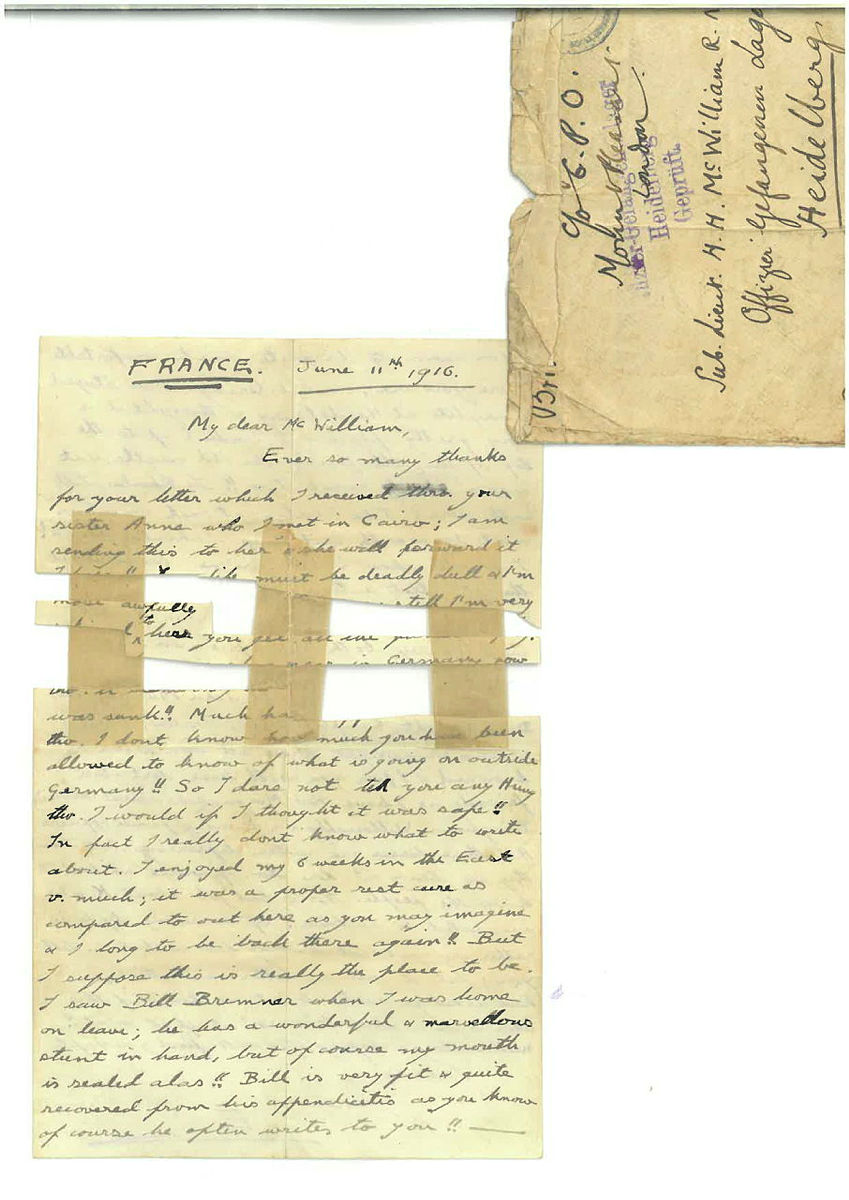 C/o G.P.O.
London.
Heidelberg
Geprüft.
Sub. Lieut. H. H. McWilliam R. N
Offizier Gefangenen Lage
Heidelberg
FRANCE. June 11th 1916.
My dear McWilliam,
Ever so many thanks
for your letter which I received thro. your
sister Anne who I met in Cairo; I am
sending this to her & she will forward it
life must be deadly dull & I'm
most awfully still I'm very
to hear you
in Germany now
was sunk!! Much ha
tho. I dont know how much you have been
allowed to know of what is going on outside
Germany!! So I dare not tell you any thing
tho. I would if I thought it was safe!!
In fact I really dont know what to write
about. I enjoyed my 6 weeks in the East
v. much; it was a proper rest cure as
compared to out here as you may imagine
& I long to be back there again!! But
I suppose this is really the place to be.
I saw Bill Bremner when I was home
on leave; he has a wonderful & marvellous
stunt in hand, but of course my mouth
is sealed alas!! Bill is very fit & quite
recovered from his appendicitis as you know
of course he often writes to you!! —